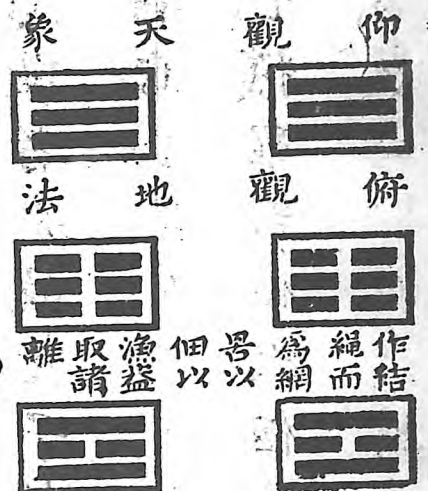 仰觀天象
俯觀地法
作結
繩而
爲網
罟以
佃以
漁盖
取諸
離